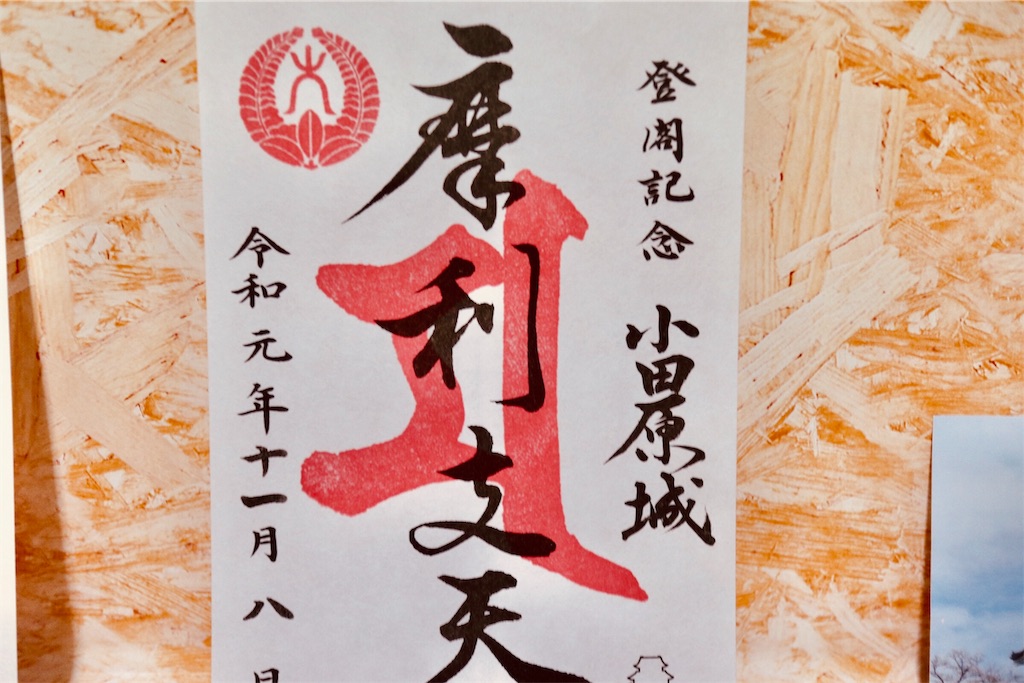 登閣記念 小田原城
摩利支天
令和元年十一月八日